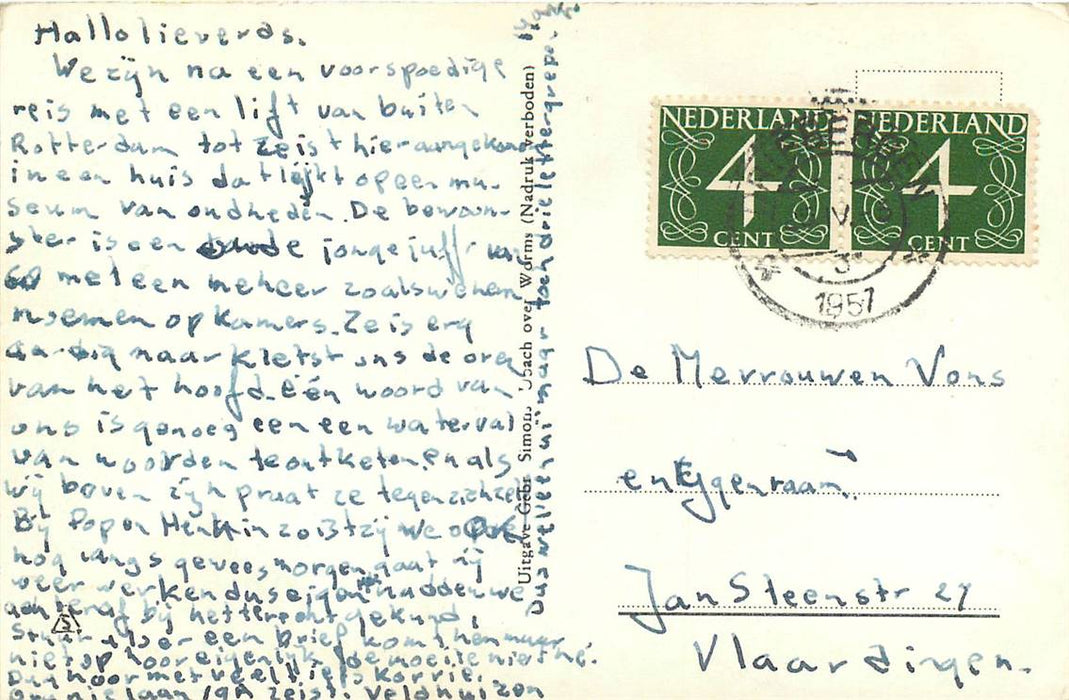 Hallo lieverds.
We zijn na een voorspoedige
reis met een lift van buiten
Rotterdam tot zeist hier aangekomen
in een huis dat lijkt op een mu-
seum van oudheden. De bewoon-
ster is een oude jonge juff. van
60 met een meheer zoals we hem
noemen op kamers. Ze is erg
aardig maar kletst ons de oren
van het hoofd. Eén woord van
ons is genoeg een een waterval
van woorden te ontketenen en als
wij boven zijn praat ze tegen zichzelf
Bij Pop en Henk in zoist zij we ook
nog langs geweest morgen gaat zij
weer werken dus eigen hadden we
achteraf bij het gekund,
Stuur een brief kom hen maar
niet op hoor eigenlijk de moeite niet hé.
Dag hoor met veel liefs Korrie.
laan 19A Zeist. Veldhuizen
Dus wel een wij maar toen drie lettergrepen
Uitgave Gebr. Simons Ubach over Worms (Nadruk verboden)
NEDERLAND NEDERLAND
4 4
CENT CENT
1957
De Mevrouwen Vons
en Eggenraam.
Jan Steenstr 27
Vlaardingen.